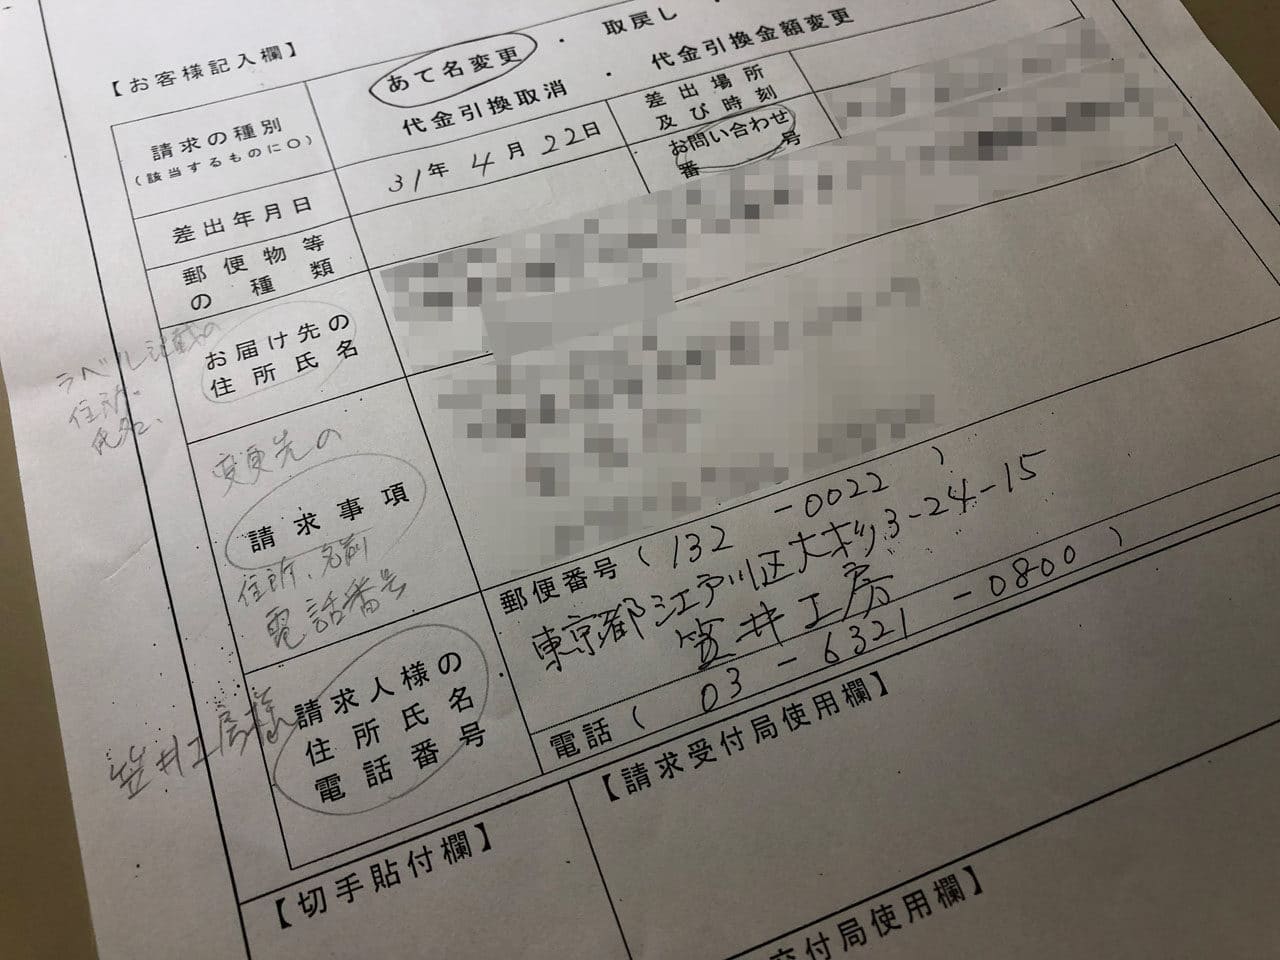 【お客様記入欄】
請求の種別
(該当するものに〇)
あて名変更 ・ 取戻し ・
代金引換取消 ・ 代金引換金額変更
差出年月日
31年 4月 22日
差出場所
及び時刻
お問い合わせ
番 号
郵便物等
の種類
お届け先の
住所氏名
ラベル記載の
住所、
氏名、
変更先の
請求事項
住所、名前
電話番号
請求人様の
住所氏名
電話番号
笠井工房様
郵便番号(132-0022)
東京都江戸川区大杉3-24-15
笠井工房
電話(03-6321-0800)
【切手貼付欄】
【請求受付局使用欄】
交付局使用欄】